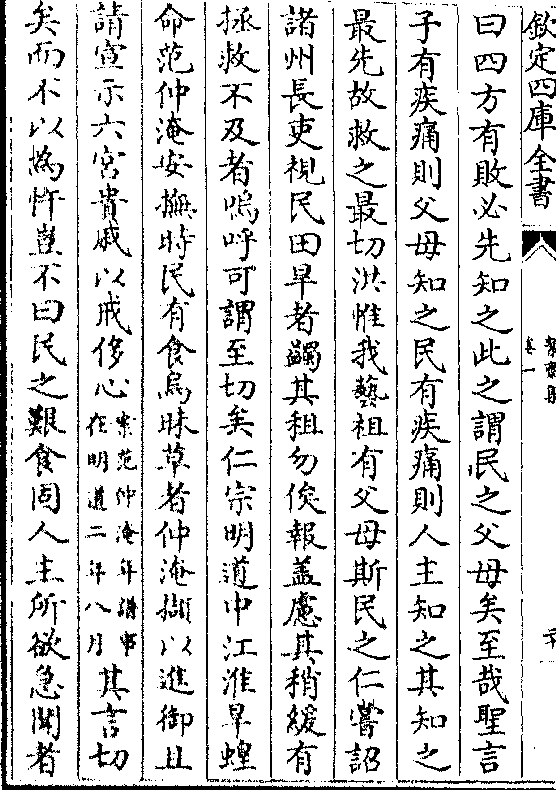 欽定四庫全書
絜齋集
卷一
曰四方有敗必先知之此之謂民之父母矣至哉聖言
子有疾痛則父母知之民有疾痛則人主知之其知之
最先故救之最切洪惟我藝祖有父母斯民之仁嘗詔
諸州長吏視民田旱者蠲其租勿俟報蓋慮其稍緩有
拯救不及者嗚呼可謂至切矣仁宗明道中江淮旱蝗
命范仲淹安撫時民有食烏昧草者仲淹擷以進御且
請宣示六宮貴戚以戒侈心案范仲淹年譜事在明道二年八月其言切
矣而不以為忤豈不曰民之艱食固人主所欲急聞者